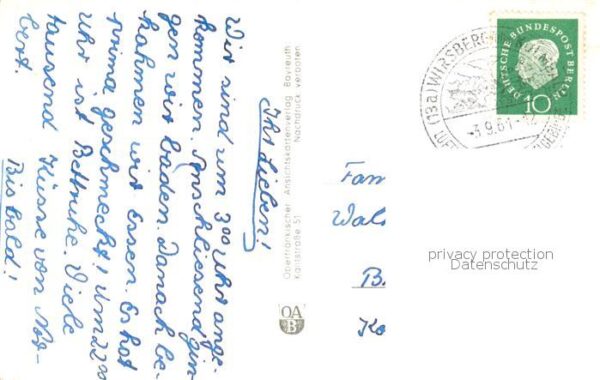 Ihr Lieben!
Wir sind um 3⁰⁰ Uhr ange-
kommen. Anschliesend gin
gen wir baden. Danach be-
kahmen wir Essen. Es hat
prima geschmeckt! Um 22⁰⁰
Uhr ist Bettruhe. Viele
tausend Küsse von Nor-
bert.
Bis bald!
Oberfränkischer Ansichtskartenverlag Bayreuth
Karlstraße 51 Nachdruck verboten
OA
B
DEUTSCHE BUNDESPOST BERLIN
10
(13a) WIRSBERG
-3.9.61.-
LUFT
Fam
Wal
B.
Ko
privacy protection
Datenschutz